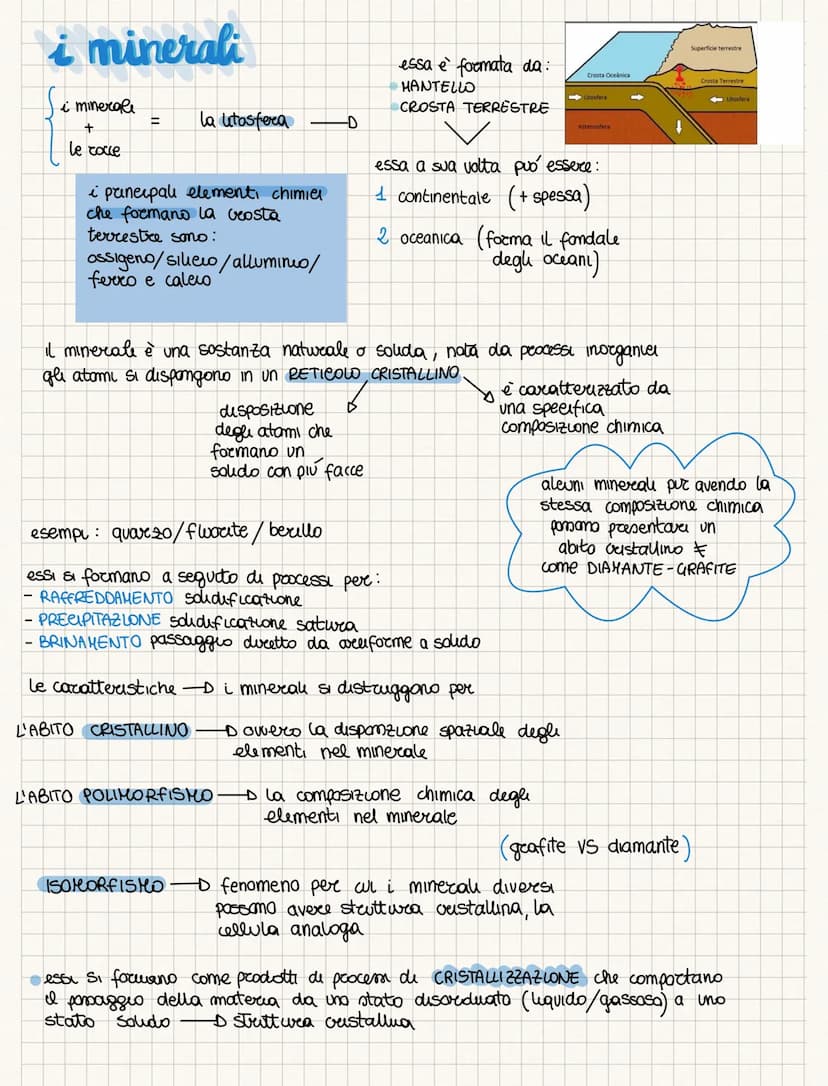 i minerali
i minerali
+
le rocce
= la litosfera
essa è formata da:
MANTELLO
CROSTA TERRESTRE
Superficie terrestre
Crosta Oceânica
Crosta Terrestre
Litosfera
Litosfera
Astenosfera
essa a sua volta può essere:
1 continentale (+ spessa)
2 oceanica (forma il fondale
degli oceani)
i principali elementi chimici
che formano la crosta
terrestre sono:
ossigeno/silicio/alluminio/
ferro e calcio
il minerale è una sostanza naturale o solida, nata da processi inorganici
gli atomi si dispongono in un RETICOLO CRISTALLINO
disposizione
degli atomi che
formano un
solido con più facce
è caratterizzato da
una specifica
composizione chimica
alcuni minerali pur avendo la
stessa composizione chimica
possono presentare un
abito cristallino ≠
come DIAMANTE-GRAFITE
esempi: quarzo/fluorite/berillo
essi si formano a seguito di processi per:
- RAFFREDDAMENTO solidificazione
- PRECIPITAZIONE solidificazione satura
- BRINAMENTO passaggio diretto da aeriforme a solido
le caratteristiche → i minerali si distruggono per
L'ABITO CRISTALLINO → ovvero la disposizione spaziale degli
elementi nel minerale
L'ABITO POLIMORFISMO → la composizione chimica degli
elementi nel minerale
(grafite VS diamante)
ISOMORFISMO → fenomeno per cui i minerali diversi
possono avere struttura cristallina, la
cellula analoga
essi si formano come prodotti di processi di CRISTALLIZZAZIONE che comportano
il passaggio della materia da uno stato disordinato (liquido/gassoso) a uno
stato solido → struttura cristallina